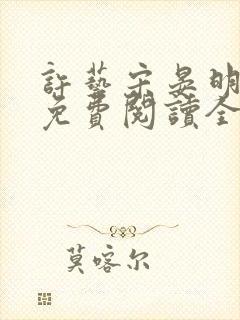 許藝宋晏明
免費閱讀全
莫喀尔